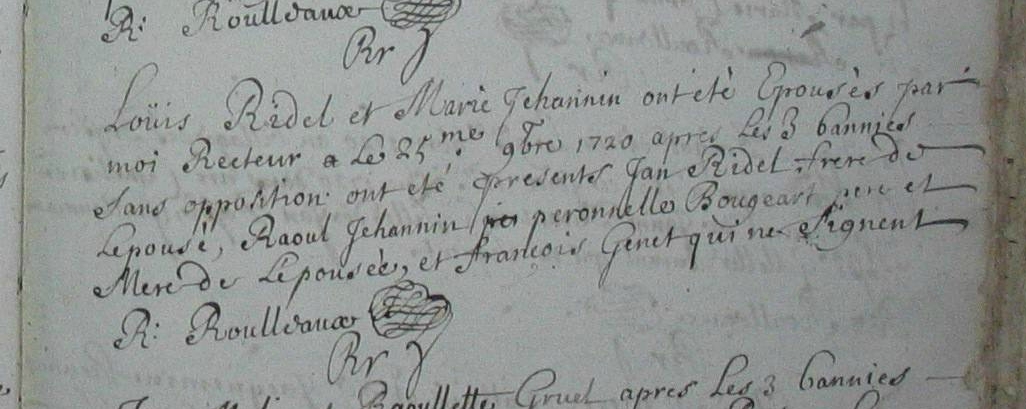 R: Roulleaux
Rr
Loüis Ridel et Marie Jehannin ont été Epousés par
moi Recteur a Le 25me. 9bre 1720 apres Les 3 bannies
sans opposition ont eté presents Jan Ridel frere de
Lepousé, Raoul Jehannin peronnelle Bougeart pere et
Mere de Lepousée, et francois Genet qui ne signent
R: Roulleaux
Rr
Raoullette Gruel apres Les 3 bannies